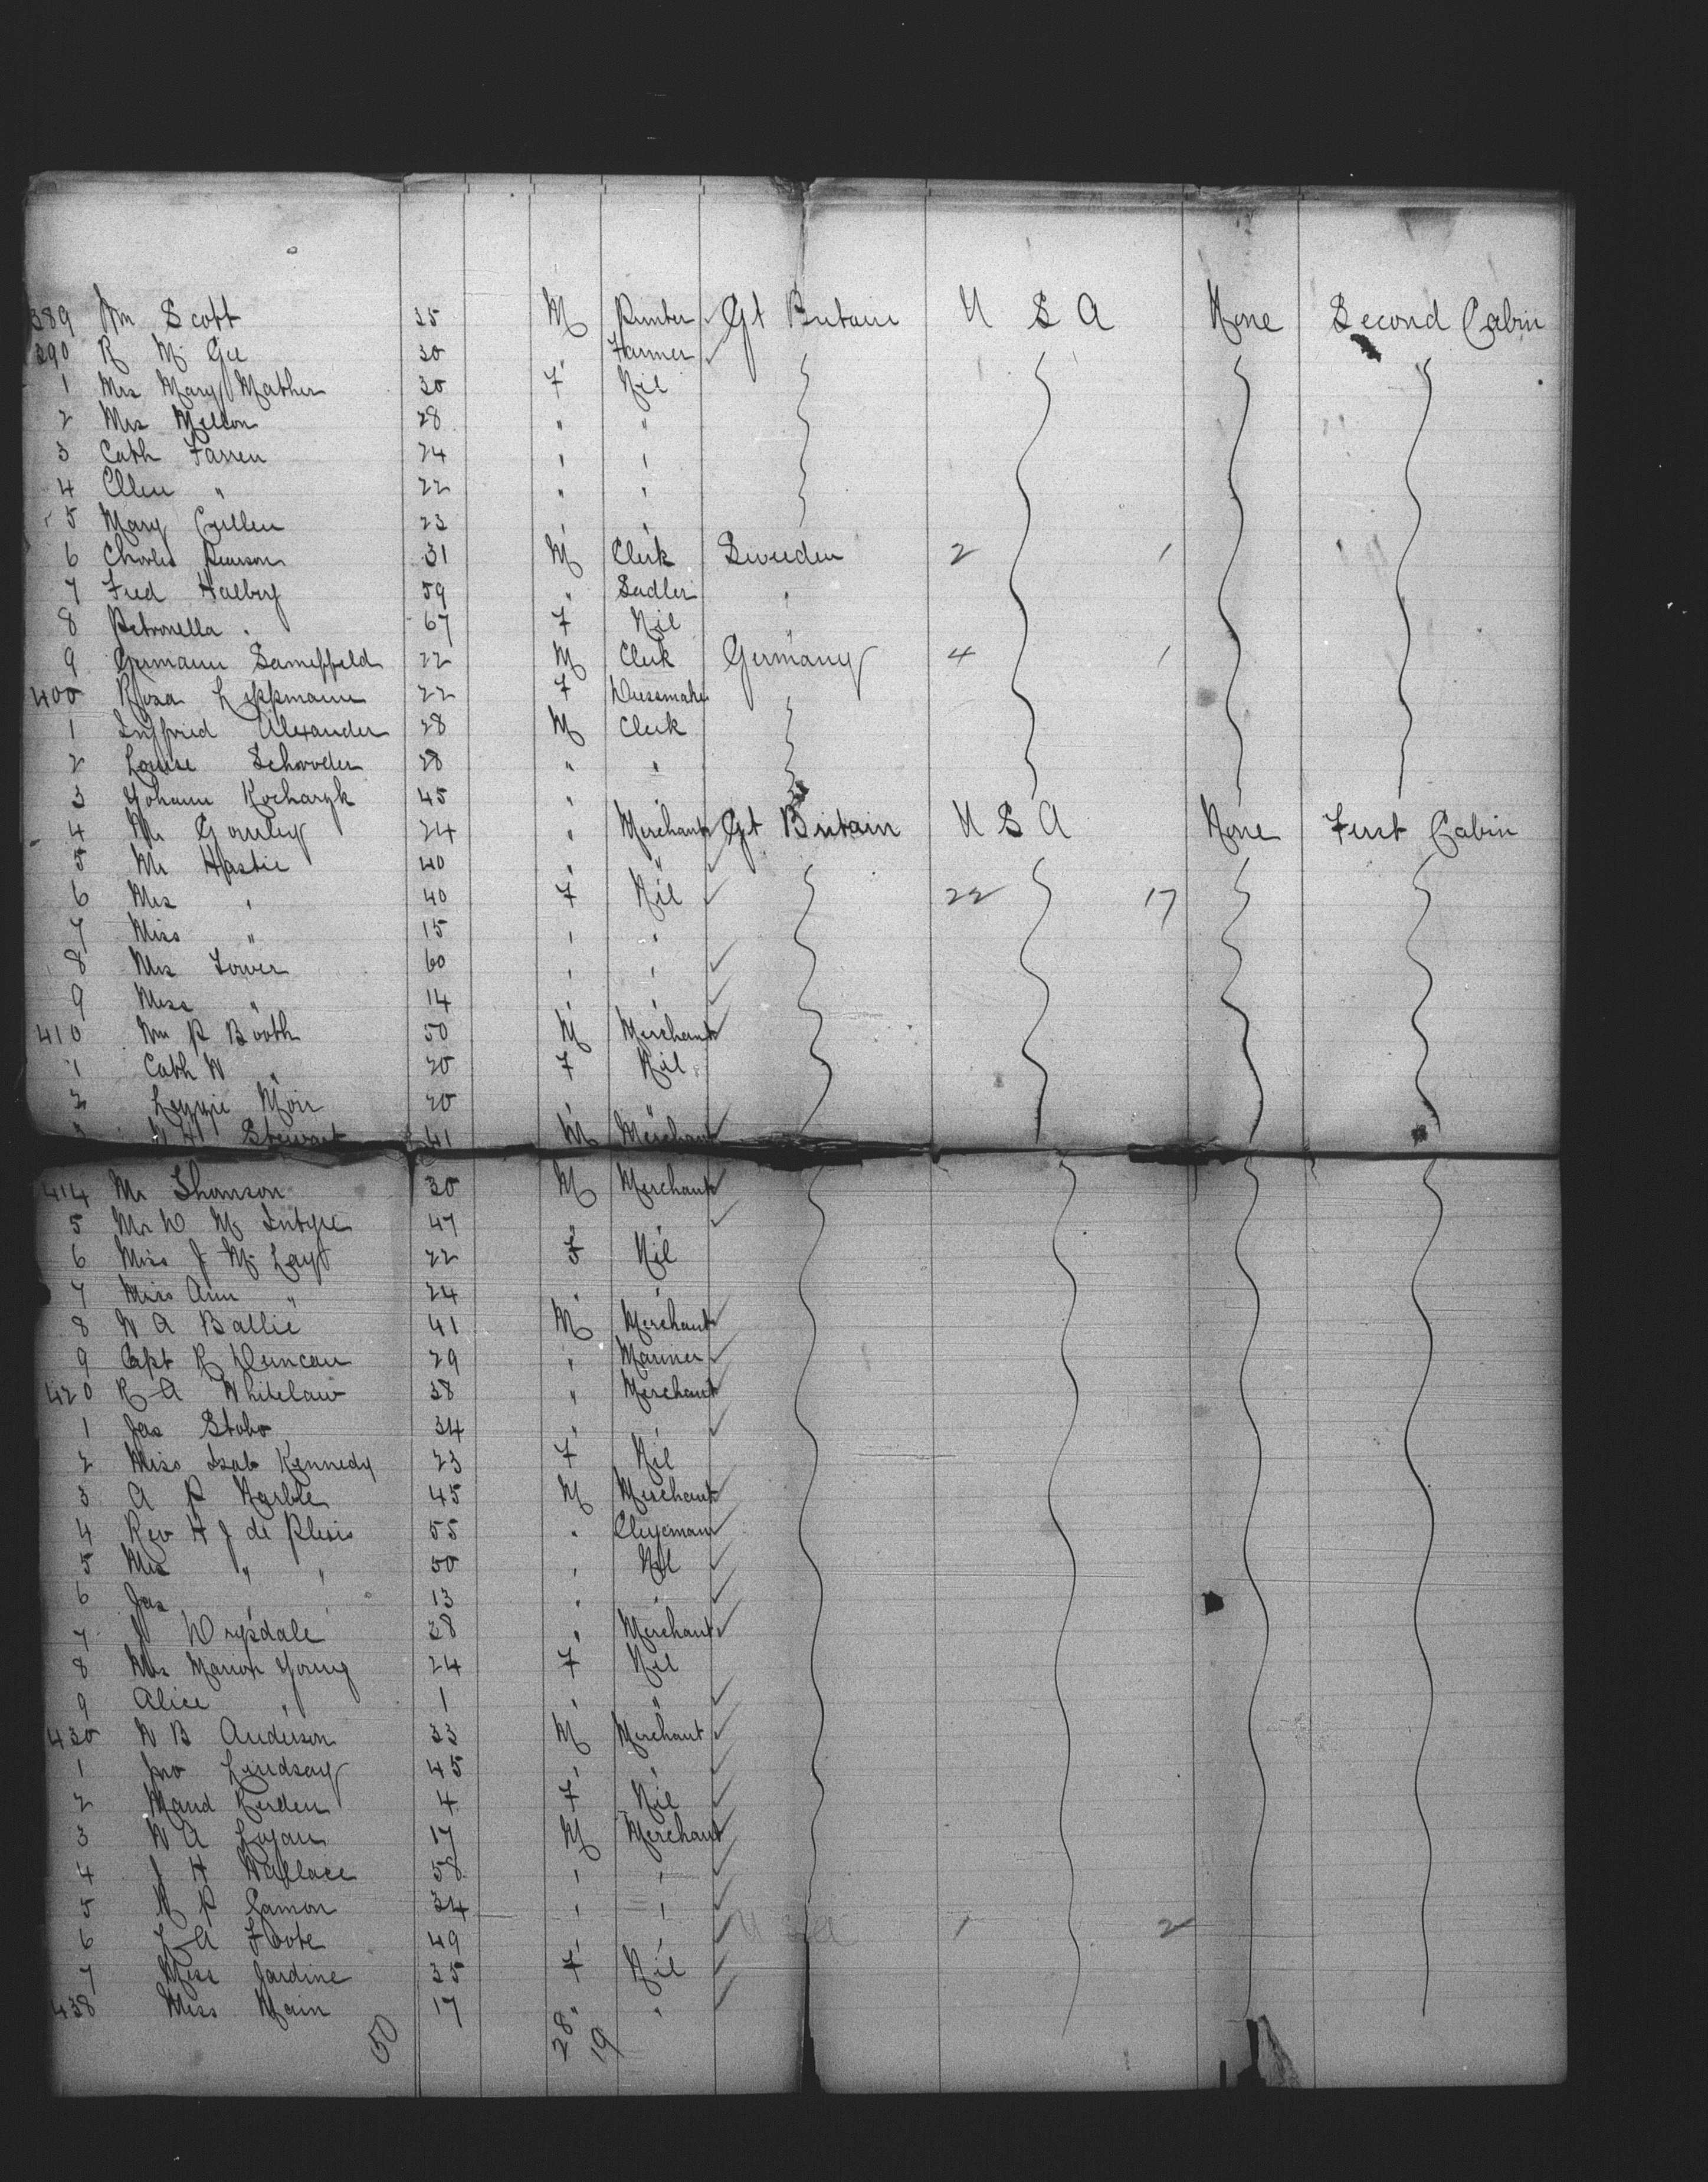 389 Wm Scott 35 M Printer Gt Britain U S A None Second Cabin
390 R Mc Gee 30 " Farmer
1 Mrs Mary Mather 30 F Nil
2 Mrs Mellon 28 " "
3 Cath Farren 24 " "
4 Ellen " 22 " "
5 Mary Cullen 23 " "
6 Charles Pearson 31 M Clerk Sweeden 2 1
7 Fred Halberg 59 " Sadler "
8 Petronella " 67 F Nil "
9 Germann 22 M Clerk Germany 4 1
400 Rosa Lippmann 22 F Dressmaker
1 Alexander 28 M Clerk
2 Louise Schroeder 28 " "
3 Johann 45 " "
4 Mr Gourley 24 " Merchant Gt Britain U S A None First Cabin
5 Mr Hastie 40 " "
6 Mrs " 40 F Nil 22 17
7 Miss " 15 " "
8 Mrs Tower 60 " "
9 Miss " 14 " "
410 Wm P Booth 50 M Merchant
1 Cath W " 20 F Nil
2 Lizzie Moir 20 " "
3 Stewart 41 M Merchant
414 Mr Thomson 30 M Merchant
5 Mr D Mc Intyre 47 " "
6 Miss J Mc Lay 22 F Nil
7 Miss Ann " 24 " "
8 W A Ballie 41 M Merchant
9 Capt R Duncan 29 " Mariner
420 R A Whitelaw 38 " Merchant
1 Jas Stobo 34 " "
2 Miss Isab Kennedy 23 F Nil
3 A P Marble 45 M Merchant
4 Rev H J de Plesis 55 " Clergman
5 Mrs " " 50 " Nil
6 Jas " " 13 " "
7 J Drysdale 38 " Merchant
8 Mrs Marion Young 24 F Nil
9 Alice " 1 " "
430 W B Anderson 33 M Merchant
1 Jno Lindsay 45 " "
2 Maud 4 F Nil
3 W A Logan 17 M Merchant
4 J H Wallace 58 " "
5 W P Gamon 34 " "
6 L A Foote 49 " " U S A 1 2
7 Miss Jardine 35 F Nil
438 Miss Main 17 " "
50 28 19